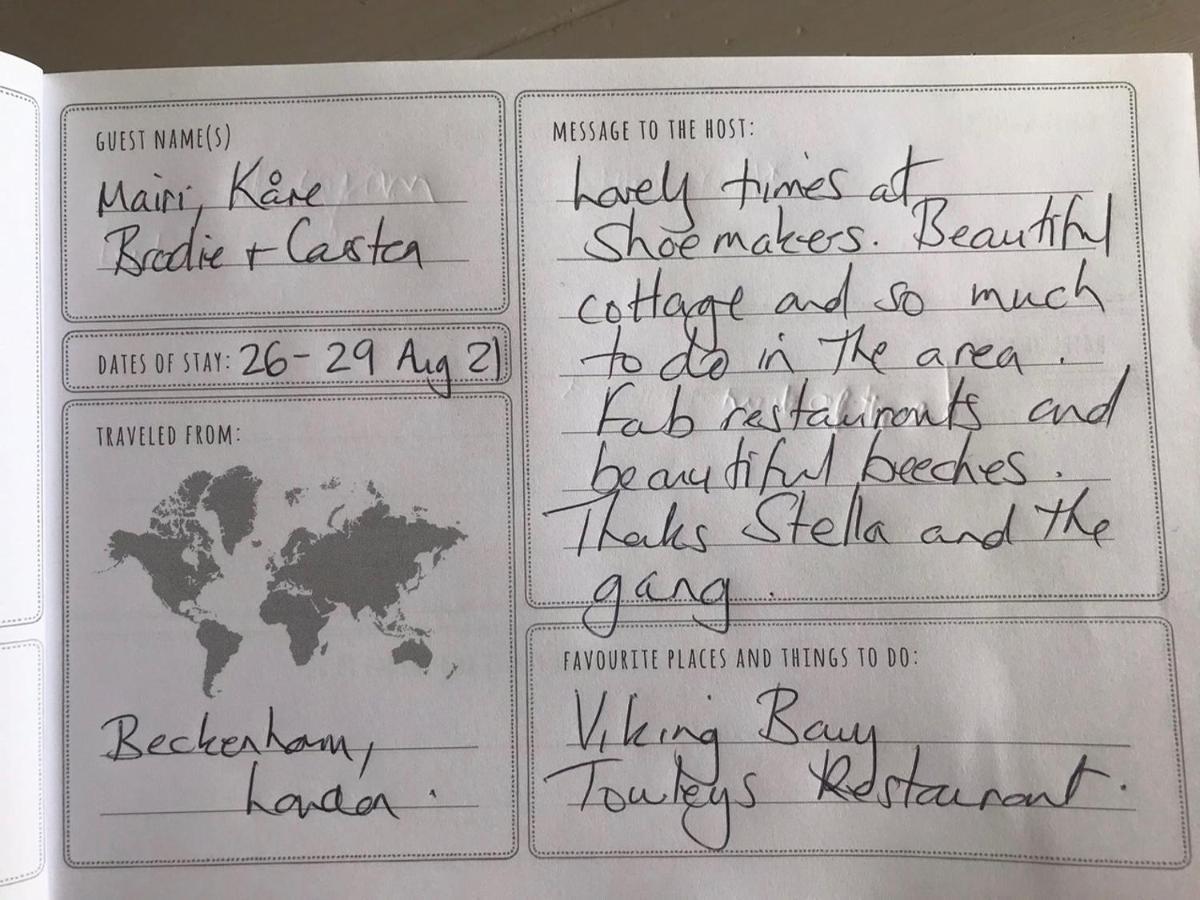 GUEST NAME(S)
Mairi, Kåre
Brodie + Casten
DATES OF STAY: 26-29 Aug 21
TRAVELED FROM:
Beckenham,
London.
MESSAGE TO THE HOST:
Lovely times at
Shoemakers. Beautiful
cottage and so much
to do in the area.
Fab restaurants and
beautiful beeches.
Thaks Stella and the
gang.
FAVOURITE PLACES AND THINGS TO DO:
Viking Bay
Restaurant.